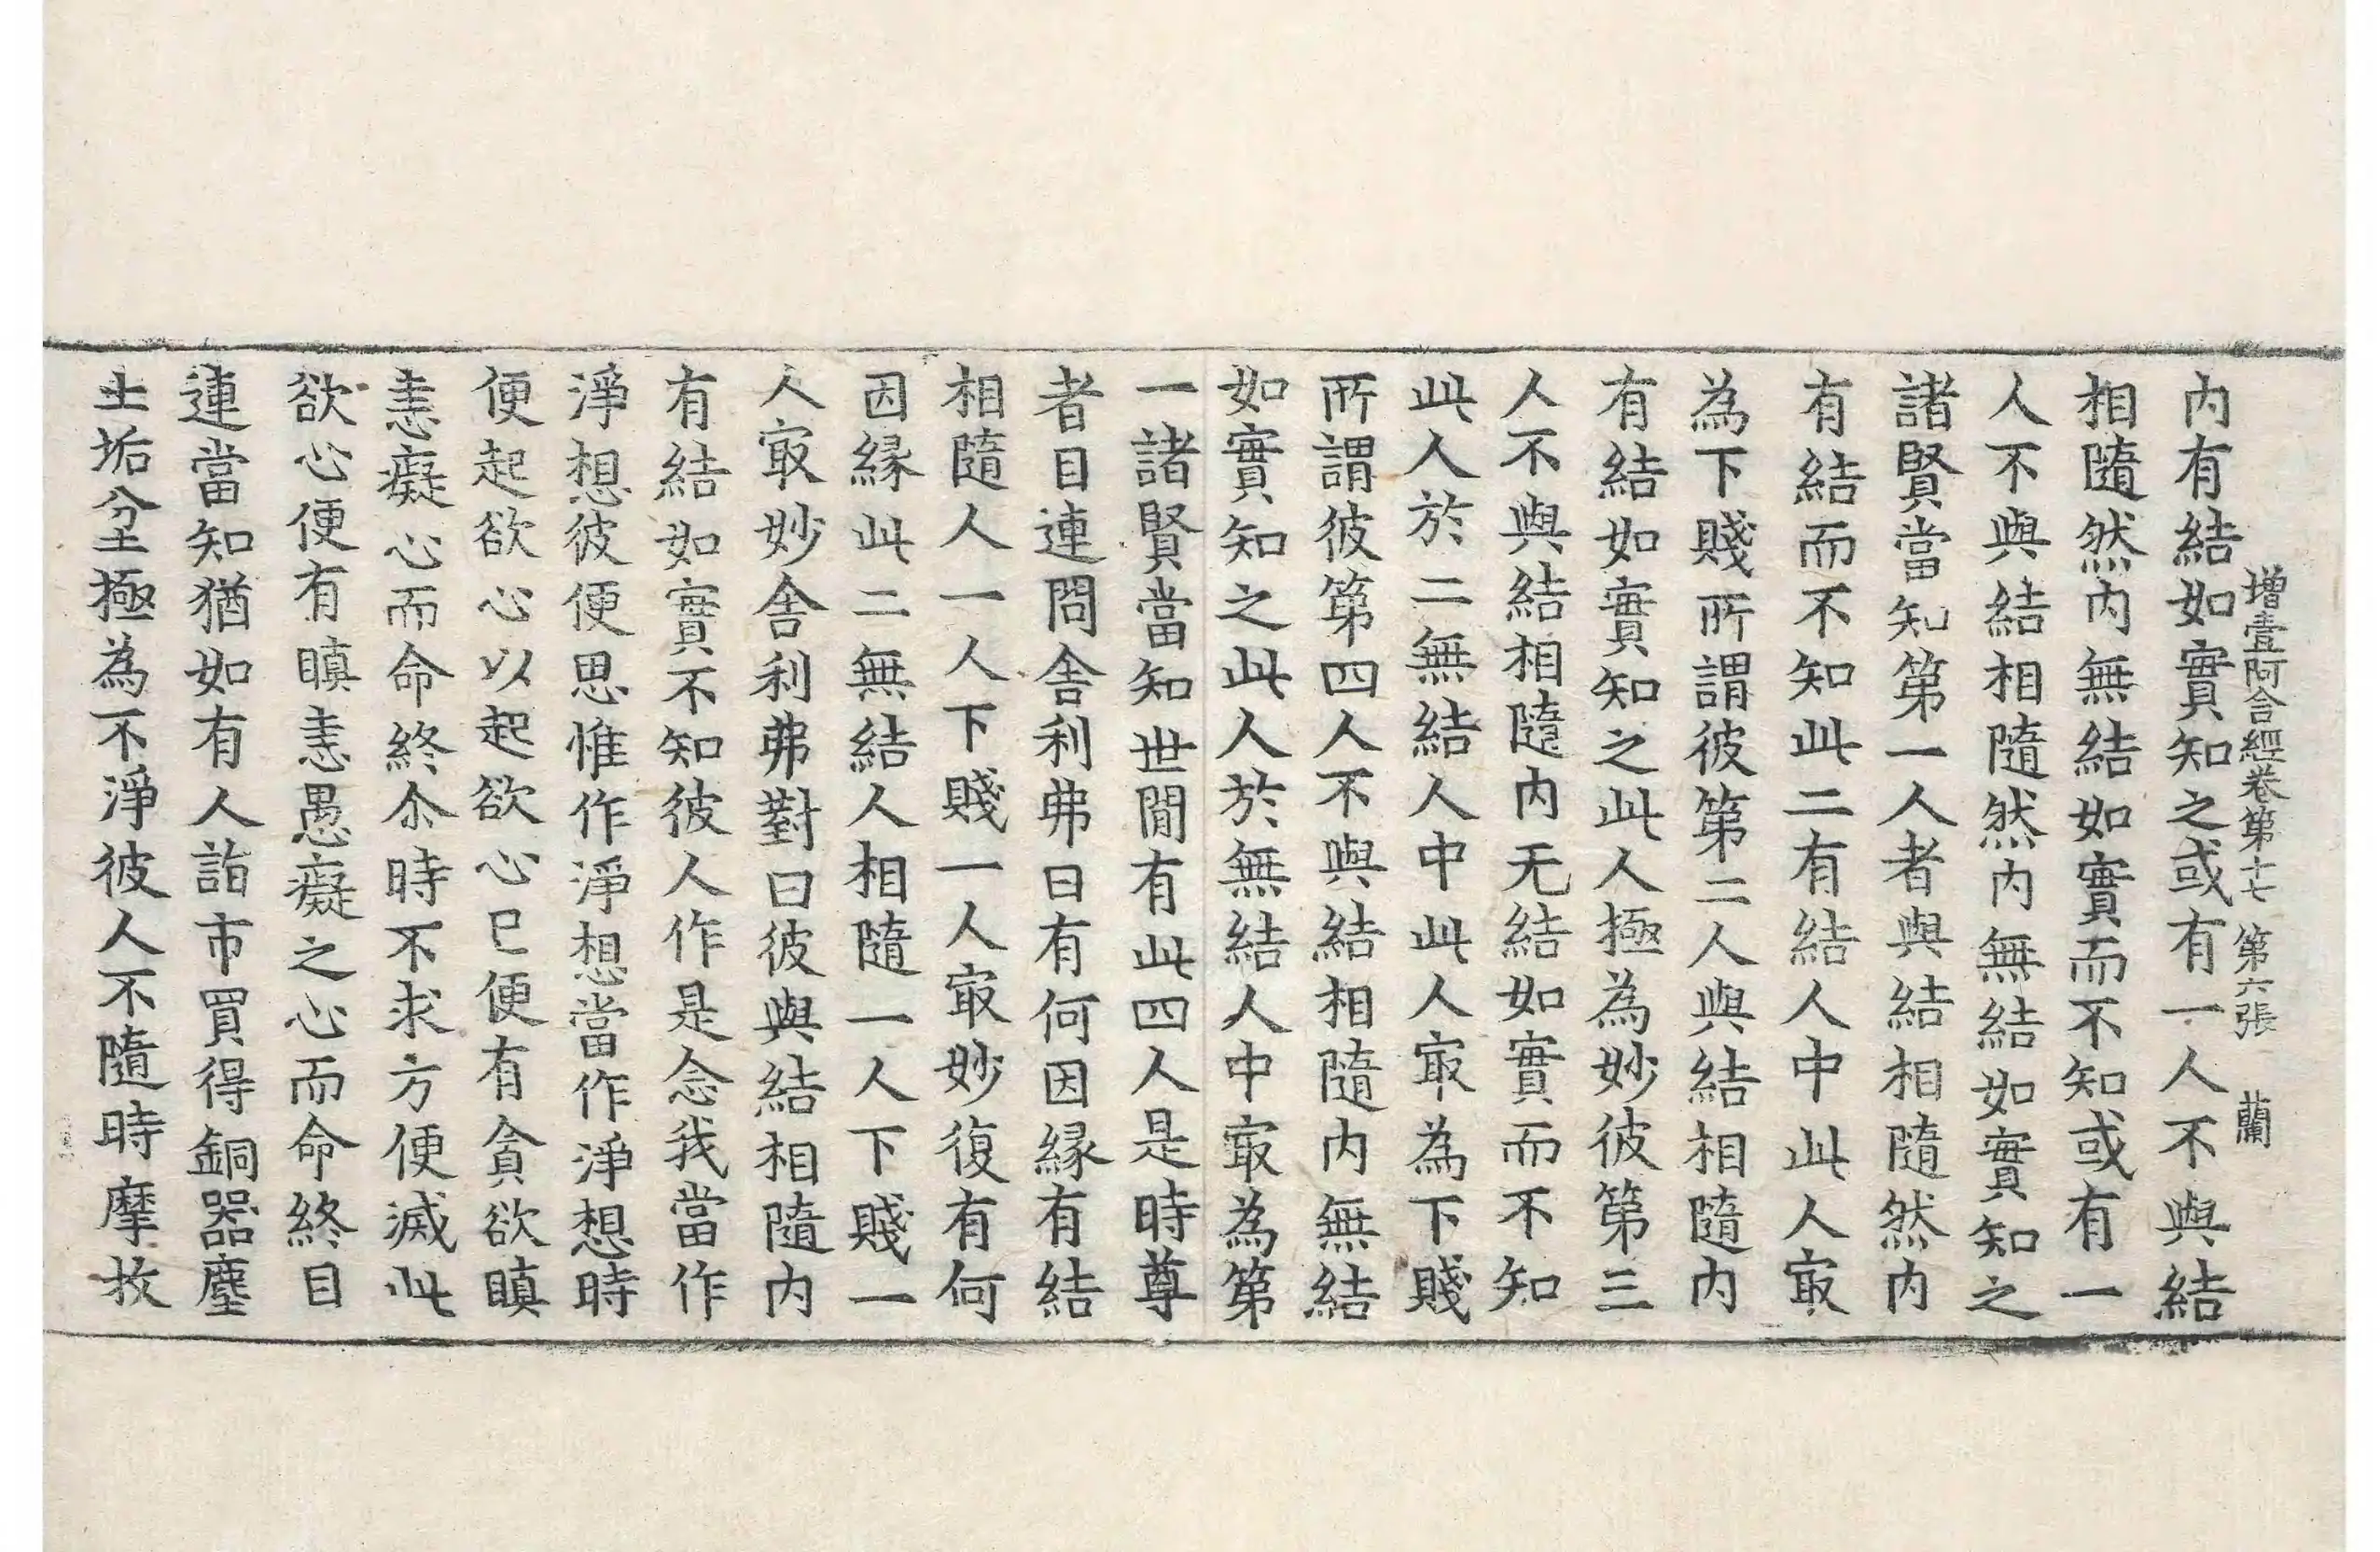 增壹阿含經卷第十七 第六張 蘭
內有結如實知之或有一人不與結
相隨然內無結如實而不知或有一
人不與結相隨然內無結如實知之
諸賢當知第一人者與結相隨然內
有結而不知此二有結人中此人㝡
為下賤所謂彼第二人與結相隨內
有結如實知之此人極為妙彼第三
人不與結相隨內无結如實而不知
此人於二無結人中此人㝡為下賤
所謂彼第四人不與結相隨內無結
如實知之此人於無結人中㝡為第
一諸賢當知世間有此四人是時尊
者目連問舍利弗曰有何因緣有結
相隨人一人下賤一人㝡妙復有何
因緣此二無結人相隨一人下賤一
人㝡妙舍利弗對曰彼與結相隨內
有結如實不知彼人作是念我當作
淨想彼便思惟作淨想當作淨想時
便起欲心以起欲心已便有貪欲瞋
恚癡心而命終尒時不求方便滅此
欲心便有瞋恚愚癡之心而命終目
連當知猶如有人詣市買得銅器塵
土垢坌極為不淨彼人不隨時摩抆